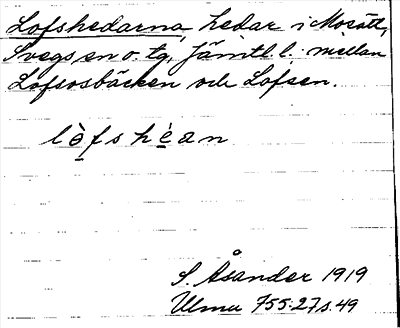 Lofshedarna, hedar i Mosätt,
Svegs sn o. tg, Jämtl. l. mellan
Lofsosbäcken och Lofsen.
lȯ̱fshė̱an
S. Åsander 1919
Ulma 755:27 s. 49